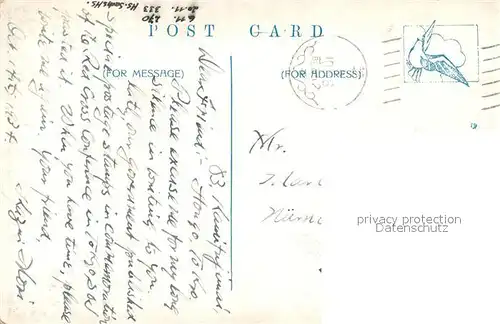 Hs. Sachs Hs.
6.11. 270
20.11. 333
POST CARD
(FOR MESSAGE)
(FOR ADDRESS)
83,
Hongo, Tokyo,
Dear Friend:-
Please excuse me for my long
silence in writing to you.
Lately, our government published
special postage stamps in commemoration
of Red Cross Conference in Tokyo so I
posted it. When you have time, please
write me again. Your friend,
Oct. 1934
Mr.
privacy protection
Datenschutz